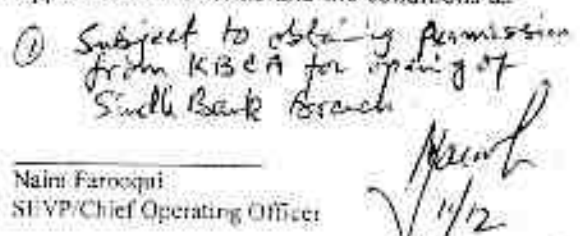 ① Subject to obtaining permission
from KBCA for opening of
Sindh Bank Branch
Naim Farooqui
SEVP/Chief Operating Officer
11/12